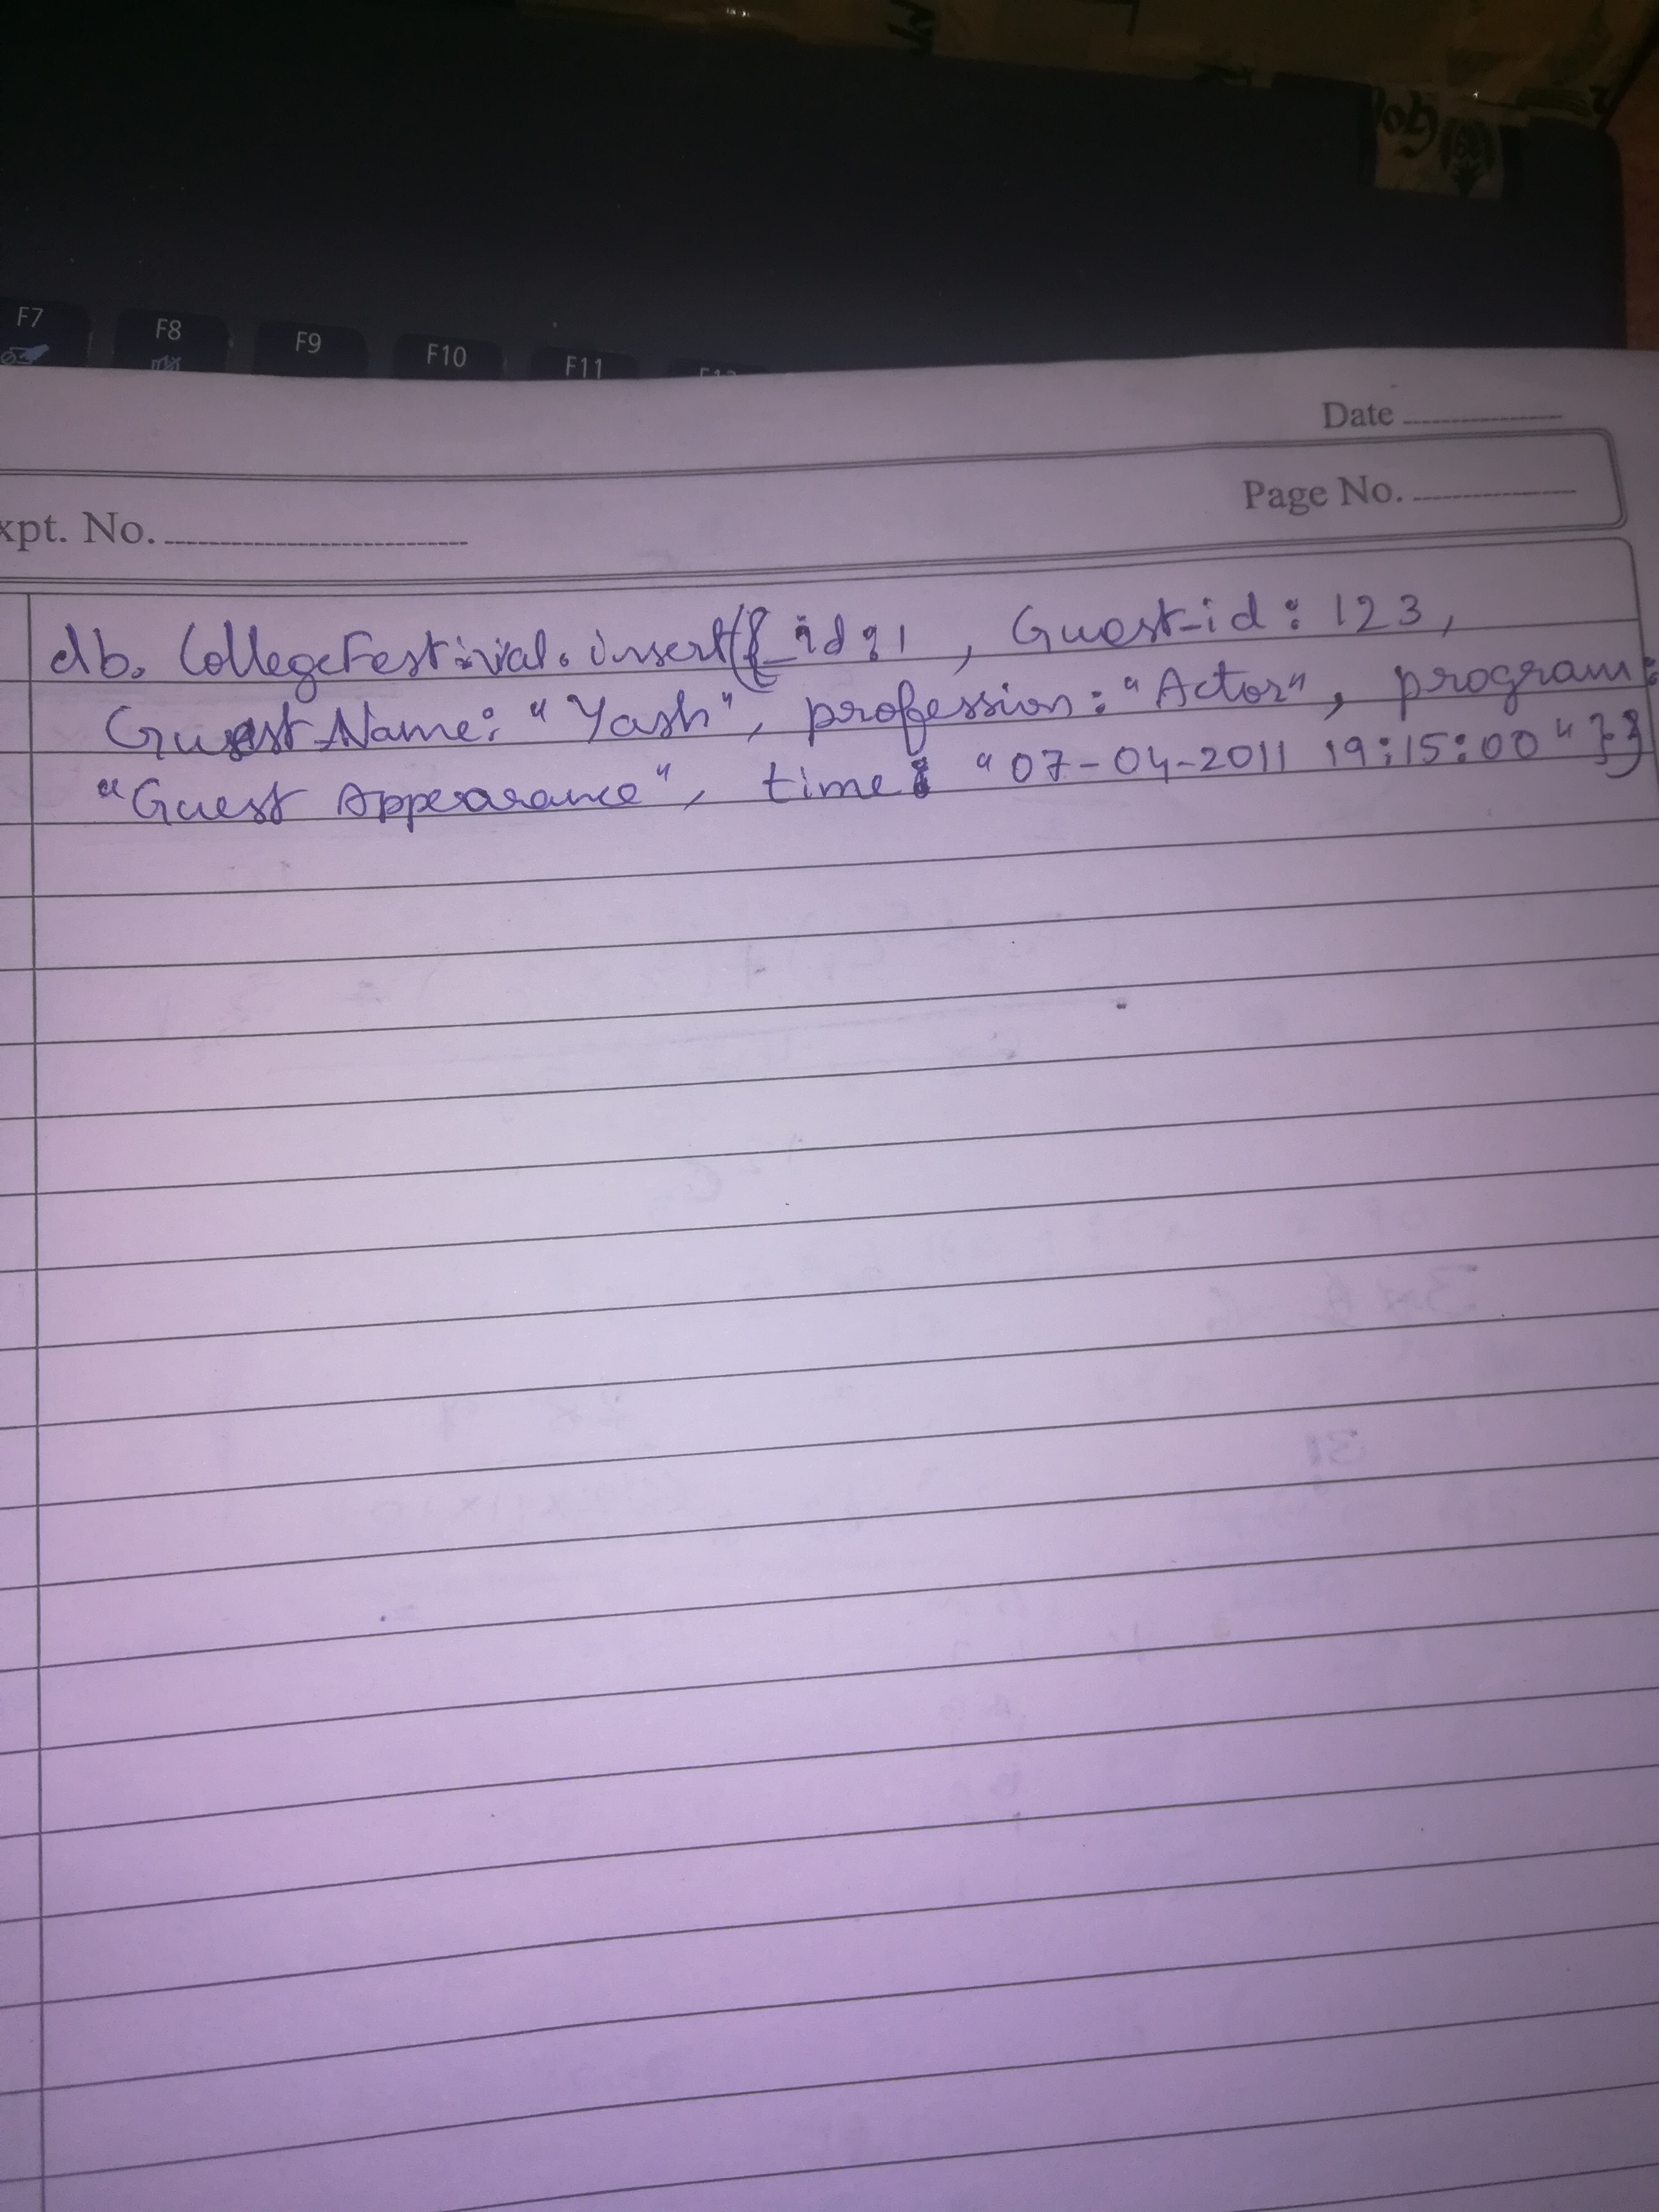 F7
F8
F9
F10
F11
F12
Date
Page No.
xpt. No.
db. CollegeFestivial. insert({_id:1 , Guest-id : 123,
Guest-Name: "Yash", profession: "Actor", program:
"Guest Appearance", time: "07-04-2011 19:15:00"}}